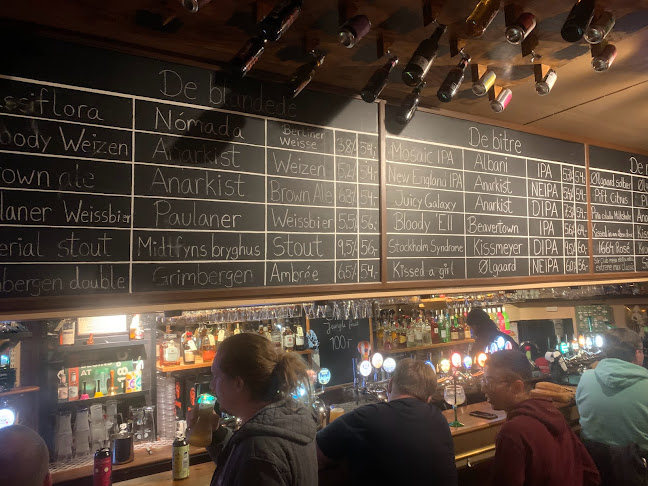 De brandede
ssiflora Nómada Berliner Weisse 3,8% 54,-
oody Weizen Anarkist Weizen 54,-
own ale Anarkist Brown Ale 54,-
ulaner Weissbier Paulaner Weissbier 5,5% 56,-
erial stout Midtfyns bryghus Stout 9,5% 56,-
mbergen double Grimbergen Ambrée 6,5% 54,-
De bitre
Mosaic IPA Albani IPA 5,7% 54,-
New England IPA Anarkist NEIPA 54,-
Juicy Galaxy Anarkist DIPA 54,-
Bloody 'Ell Beavertown IPA
Stockholm Syndrome Kissmeyer DIPA
Kissed a girl Ølgaard NEIPA
De
Ølgaard
Pift Citrus
1664 Rosé
Jungle fuel
100,-